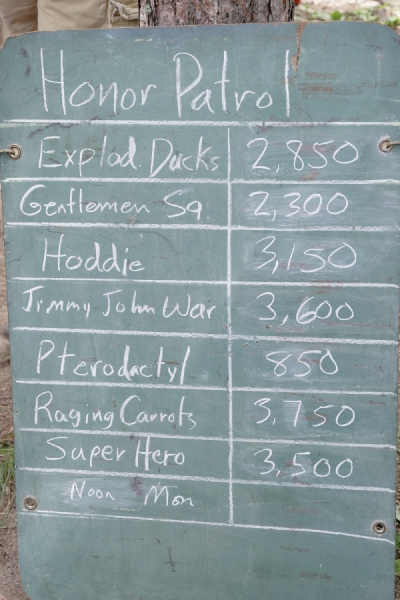 Honor Patrol
Explod. Ducks 2,850
Gentlemen Sq. 2,300
Hoddie 3,150
Jimmy John War 3,600
Pterodactyl 850
Raging Carrots 3,750
Super Hero 3,500
Noon Mon